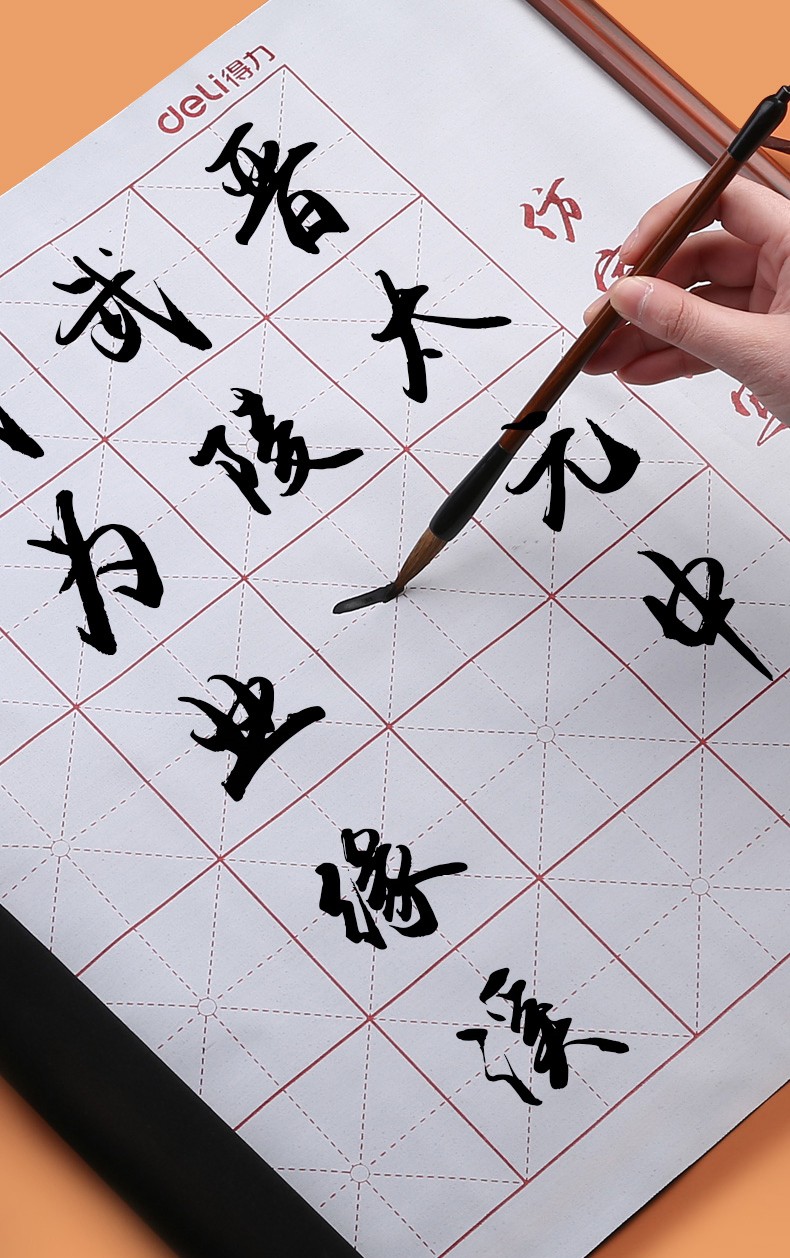 deli得力
仿
晋太元中
武陵
为业缘溪